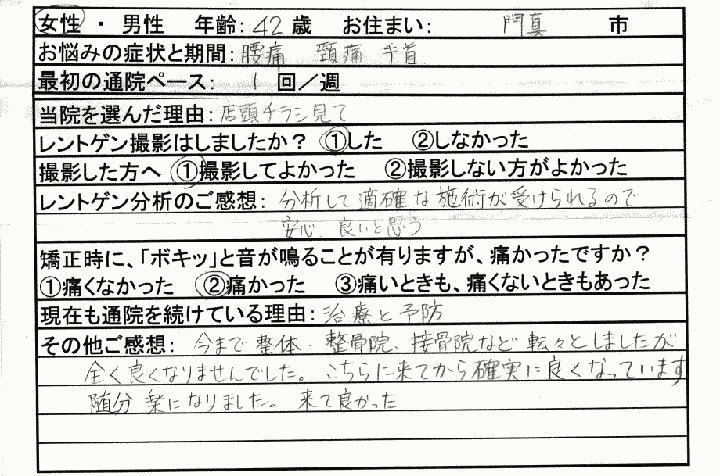 女性・男性 年齢:42歳 お住まい: 門真 市
お悩みの症状と期間:腰痛 頸痛 手首
最初の通院ペース: 1 回/週
当院を選んだ理由:店頭チラシ見て
レントゲン撮影はしましたか? ①した ②しなかった
撮影した方へ ①撮影してよかった ②撮影しない方がよかった
レントゲン分析のご感想: 分析して滴確な施術が受けられるので
安心、良いと思う
矯正時に、「ボキッ」と音が鳴ることが有りますが、痛かったですか?
①痛くなかった ②痛かった ③痛いときも、痛くないときもあった
現在も通院を続けている理由:治療と予防
その他ご感想: 今まで整体・整骨院、接骨院など転々としましたが
全く良くなりませんでした。こちらに来てから確実に良くなっています
随分楽になりました。来て良かった